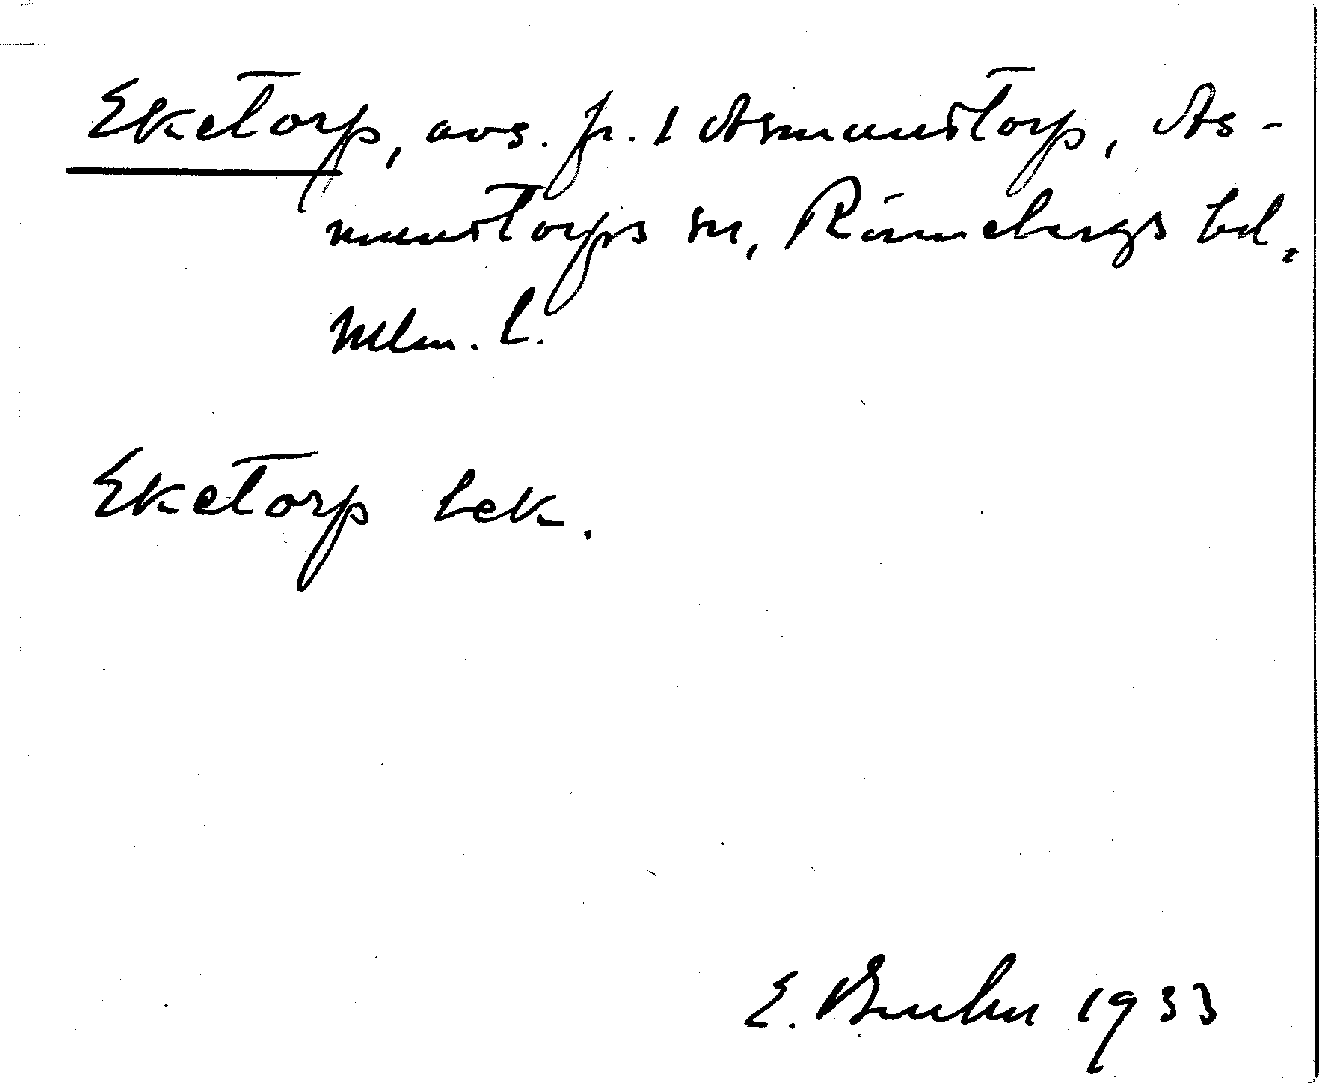 Eketorp, avs. fr. 1 Asmundtorp, As-
mundtorps sn, Rönnebergs hd,
Mlm. l.
Eketorp bek.
E. 1933